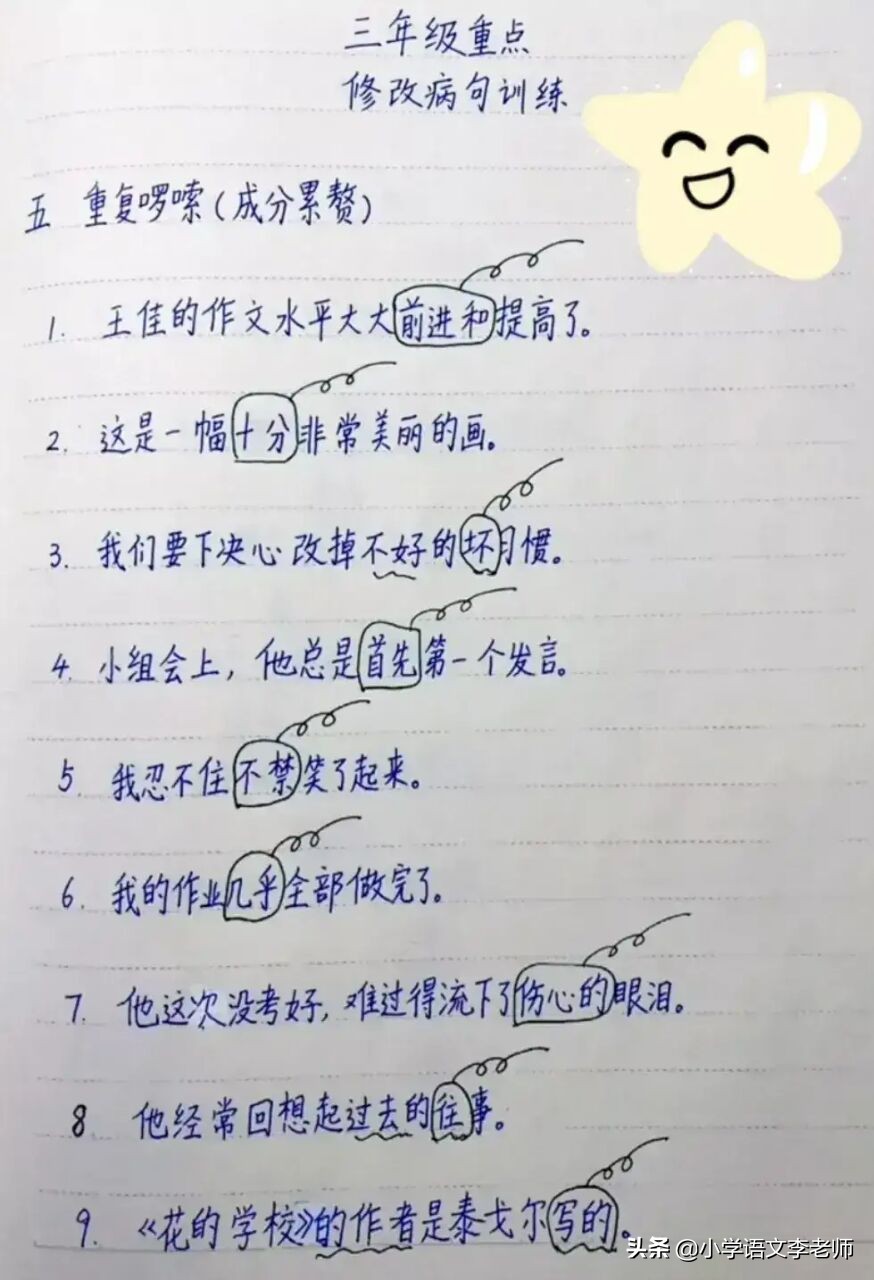 三年级重点
修改病句训练
五 重复啰嗦(成分累赘)
1. 王佳的作文水平大大前进和提高了。
2. 这是一幅十分非常美丽的画。
3. 我们要下决心改掉不好的坏习惯。
4. 小组会上，他总是首先第一个发言。
5 我忍不住不禁笑了起来。
6. 我的作业几乎全部做完了。
7. 他这次没考好，难过得流下了伤心的眼泪。
8 他经常回想起过去的往事。
9. 《花的学校》的作者是泰戈尔写的。
头条 @小学语文李老师